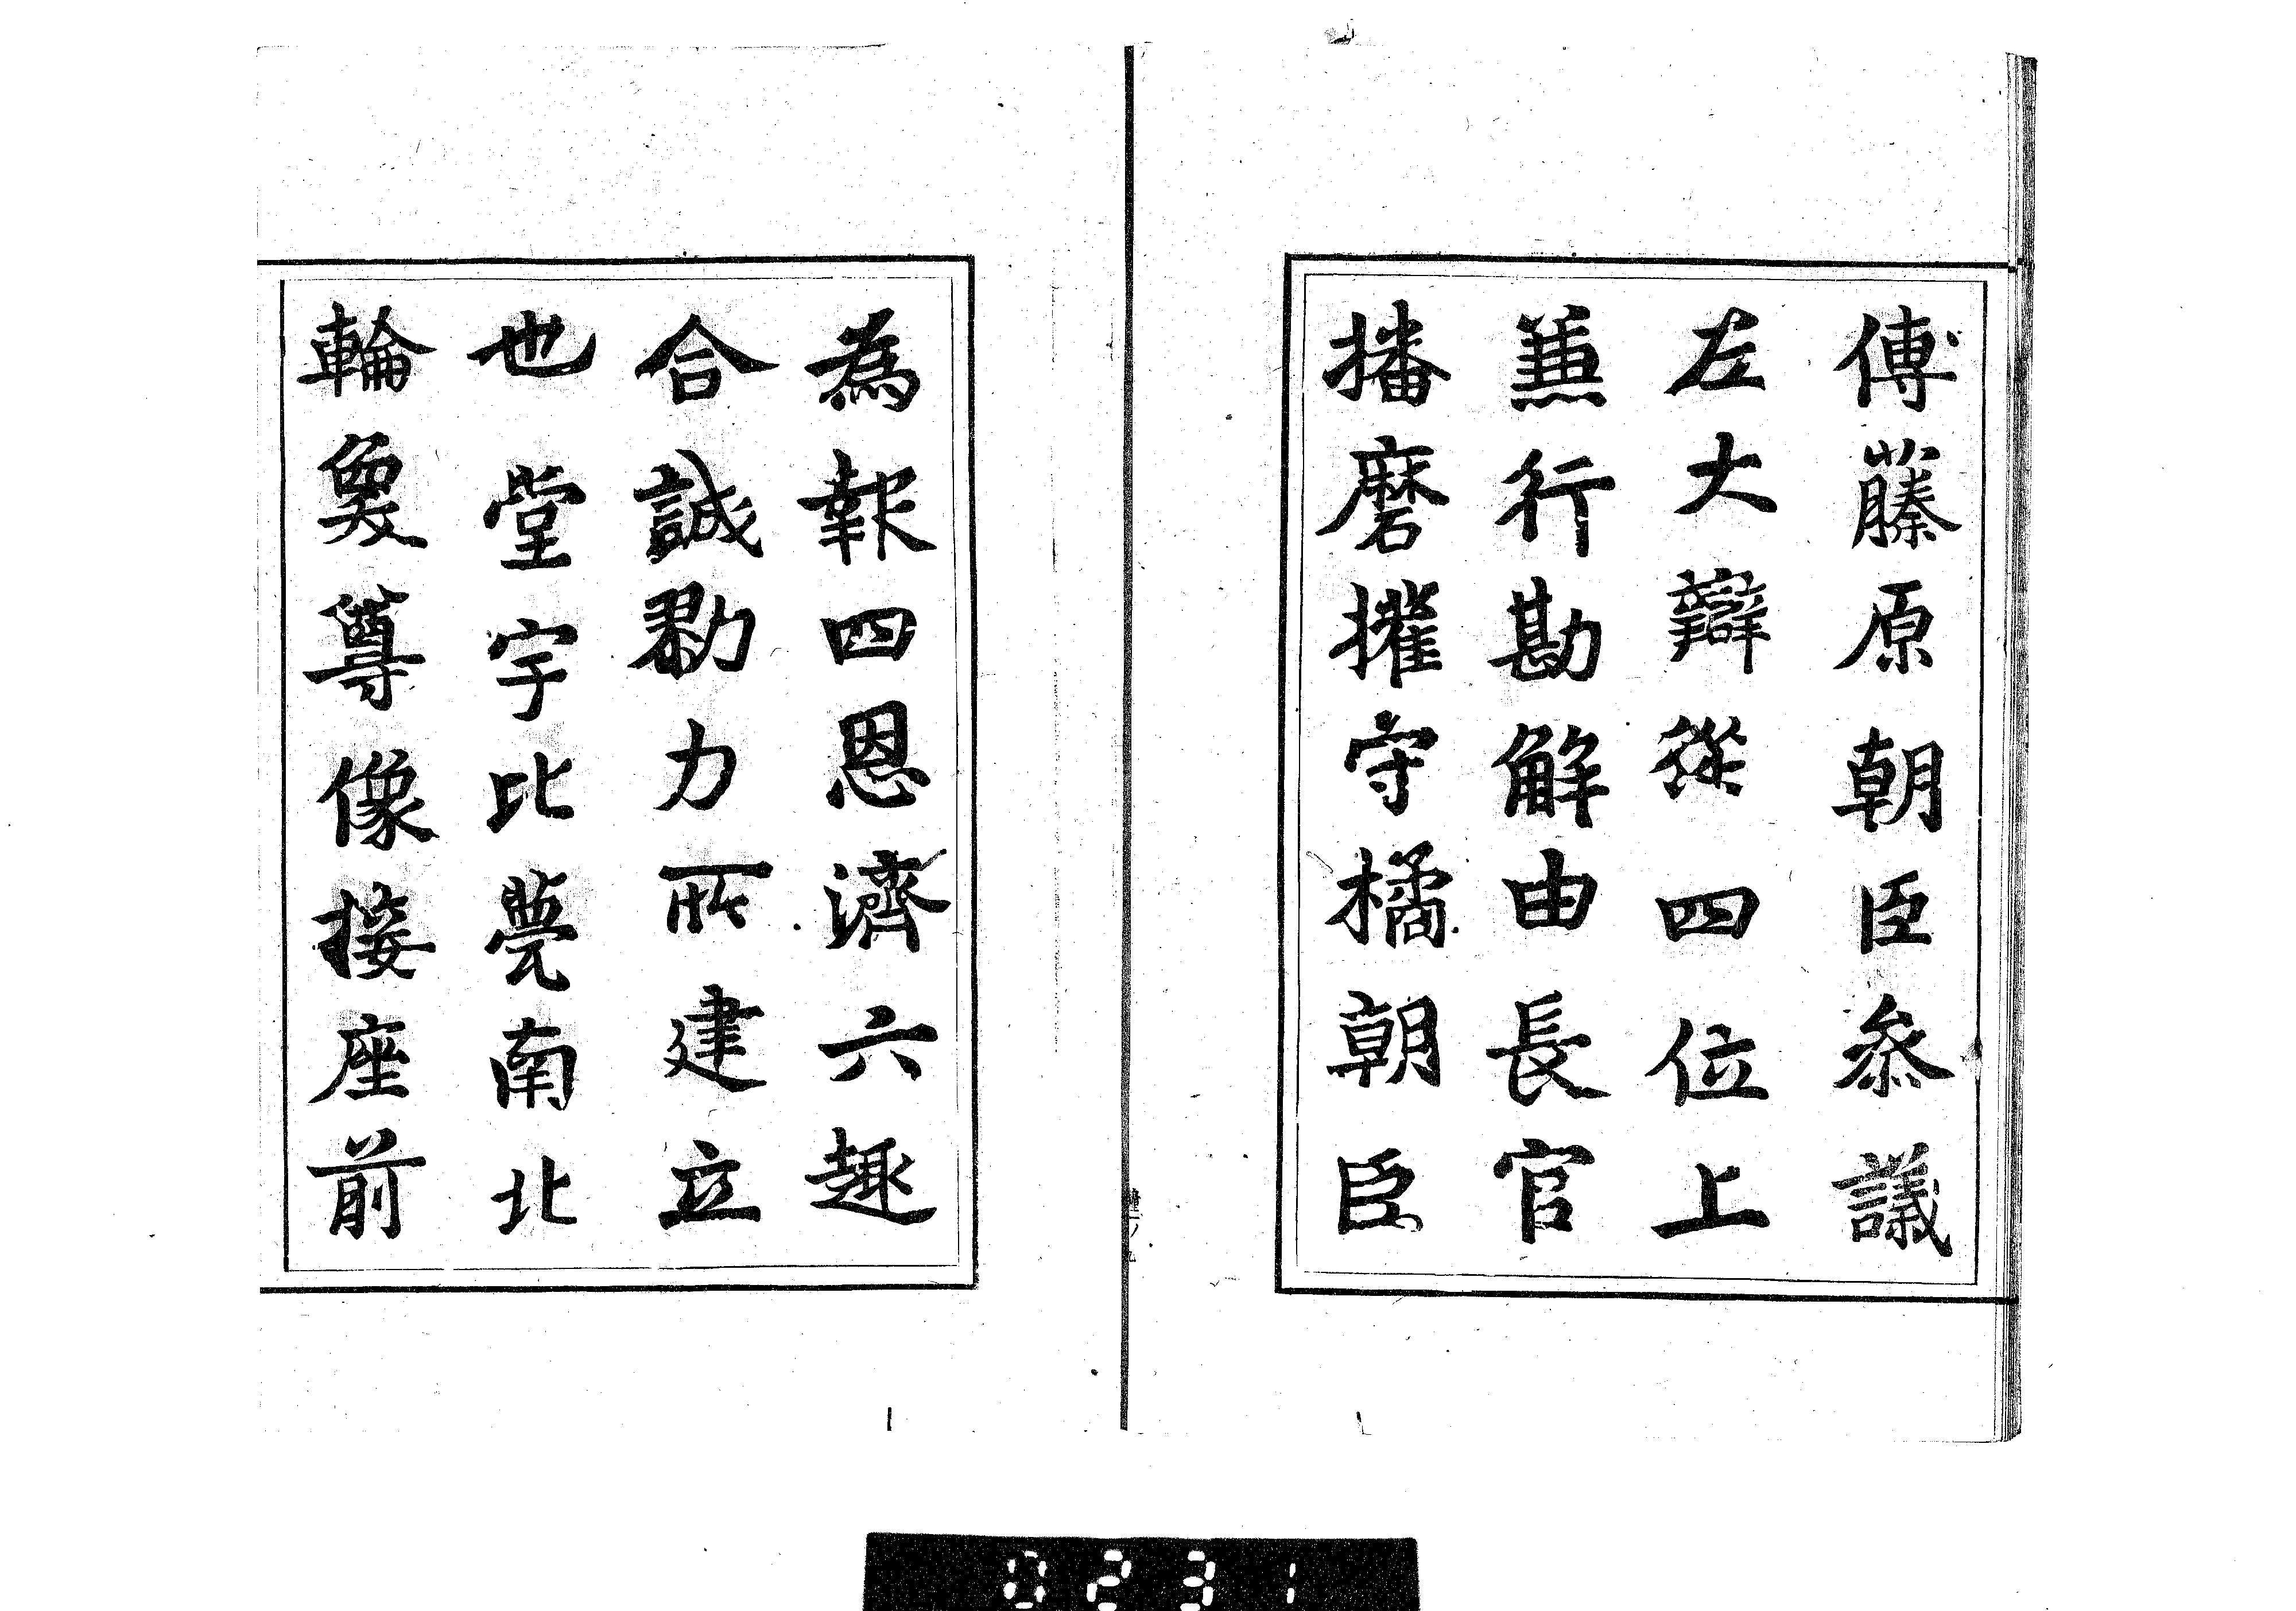 傅藤原朝臣叅議
左大辯從四位上
兼行勘解由長官
播磨攉守橘朝臣
為報四恩濟六趣
合誠勠力所建立
也堂宇比甍南北
輪奐尊像接座前
0231